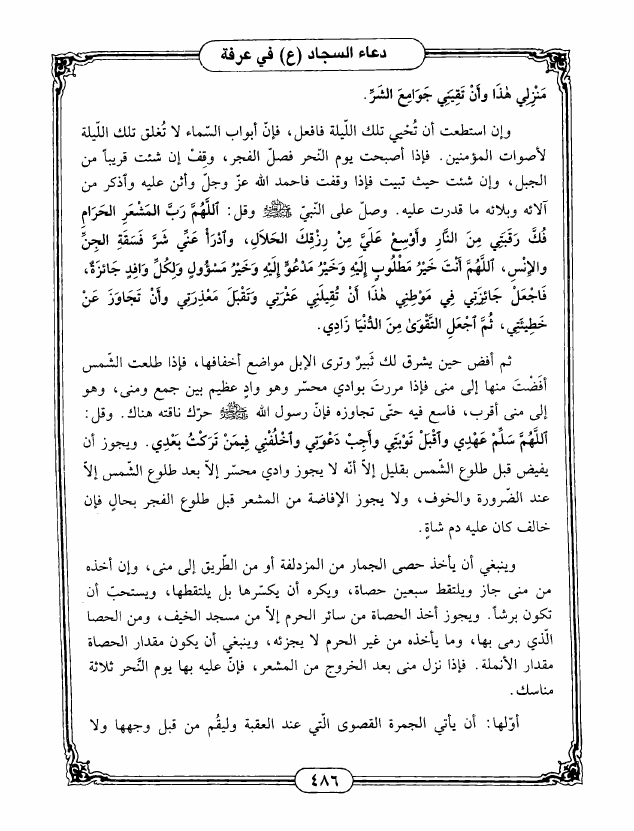 دعاء السجاد (ع) في عرفة
مَنْزِلِي هٰذَا وأَنْ تَقِيَنِي جَوَامِعَ الشَّرِّ.
وإن استطعت أن تُحْيي تلك اللّيلة فافعل، فإنّ أبواب السّماء لا تُغلق تلك اللّيلة
لأصوات المؤمنين. فإذا أصبحت يوم النّحر فصلّ الفجر، وقِفْ إن شئت قريباً من
الجبل، وإن شئت حيث تبيت فإذا وقفت فاحمد الله عزّ وجلّ وأثن عليه وٱذكر من
آلائه وبلائه ما قدرت عليه. وصلّ على النّبيّ ﷺ وقل: ٱللَّهُمَّ رَبَّ المَشْعَرِ الحَرَامِ
فُكَّ رَقَبَتِي مِنَ النَّارِ وأَوْسِعْ عَلَيَّ مِنْ رِزْقِكَ الحَلَالِ، وٱدْرَأْ عَنِّي شَرَّ فَسَقَةِ الجِنِّ
والإِنْسِ، ٱللَّهُمَّ أَنْتَ خَيْرُ مَطْلُوبٍ إِلَيْهِ وَخَيْرُ مَدْعُوٍّ إِلَيْهِ وَخَيْرُ مَسْؤُولٍ وَلِكُلِّ وَافِدٍ جَائِزَةٌ،
فَاجْعَلْ جَائِزَتِي فِي مَوْطِنِي هٰذَا أَنْ تُقِيلَنِي عَثْرَتِي وَتَقْبَلَ مَعْذِرَتِي وأَنْ تَجَاوَزَ عَنْ
خَطِيئَتِي، ثُمَّ ٱجْعَلِ التَّقْوَىٰ مِنَ الدُّنْيَا زَادِي.
ثم أفض حين يشرق لك ثَبِيرٌ وترى الإبل مواضع أخفافها، فإذا طلعت الشّمس
أفَضْتَ منها إلى منى فإذا مررت بوادي محسّر وهو وادٍ عظيم بين جمع ومنى، وهو
إلى منى أقرب، فاسع فيه حتّى تجاوزه فإنّ رسول الله ﷺ حرّك ناقته هناك. وقل:
ٱللَّهُمَّ سَلِّمْ عَهْدِي وٱقْبَلْ تَوْبَتِي وأَجِبْ دَعْوَتِي وٱخْلُفْنِي فِيمَنْ تَرَكْتُ بَعْدِي. ويجوز أن
يفيض قبل طلوع الشّمس بقليل إلاّ أنّه لا يجوز وادي محسّر إلاّ بعد طلوع الشّمس إلاّ
عند الضّرورة والخوف، ولا يجوز الإفاضة من المشعر قبل طلوع الفجر بحالٍ فإن
خالف كان عليه دم شاةٍ.
وينبغي أن يأخذ حصى الجمار من المزدلفة أو من الطّريق إلى منى، وإن أخذه
من منى جاز ويلتقط سبعين حصاة، ويكره أن يكسّرها بل يلتقطها، ويستحبّ أن
تكون برشاً. ويجوز أخذ الحصاة من سائر الحرم إلاّ من مسجد الخيف، ومن الحصا
الّذي رمى بها، وما يأخذه من غير الحرم لا يجزئه، وينبغي أن يكون مقدار الحصاة
مقدار الأنملة. فإذا نزل منى بعد الخروج من المشعر، فإنّ عليه بها يوم النّحر ثلاثة
مناسك.
أوّلها: أن يأتي الجمرة القصوى الّتي عند العقبة وليقُم من قبل وجهها ولا
٤٨٦